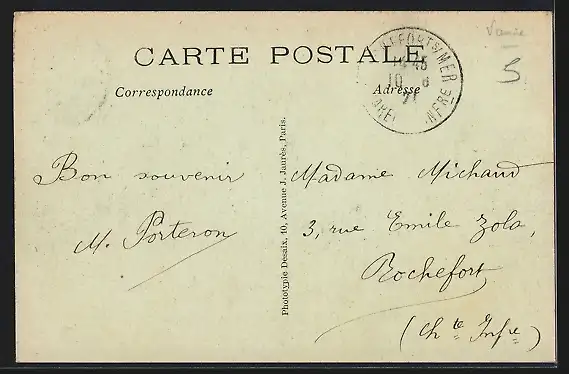 CARTE POSTALE
Correspondance
Adresse
14 45
10 8
21
5
Bon souvenir
M. Porteron
Phototypie Desaix, 40, Avenue J. Jaurès, Paris.
Madame Michaud
3, rue Emile Zola,
Rochefort
(Ch te Infre)